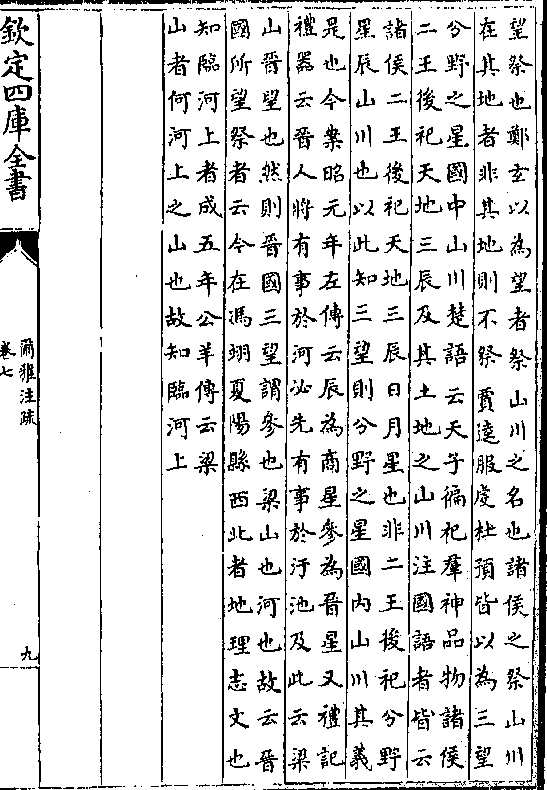 望祭也鄭玄以為望者祭山川之名也諸侯之祭山川
在其地者非其地則不祭賈逵服虔杜預皆以為三望
分野之星國中山川楚語云天子徧祀羣神品物諸侯
二王後祀天地三辰及其土地之山川注國語者皆云
諸侯二王後祀天地三辰日月星也非二王後祀分野
星辰山川也以此知三望則分野之星國內山川其義
是也今案昭元年左傳云辰為商星參為晉星又禮記
禮器云晉人將有事於河必先有事於汙池及此云梁
山晉望也然則晉國三望謂參也梁山也河也故云晉
國所望祭者云今在馮翊夏陽縣西北者地理志文也
知臨河上者成五年公羊傳云梁
山者何河上之山也故知臨河上
欽定四庫全書
爾雅注疏
卷七
九